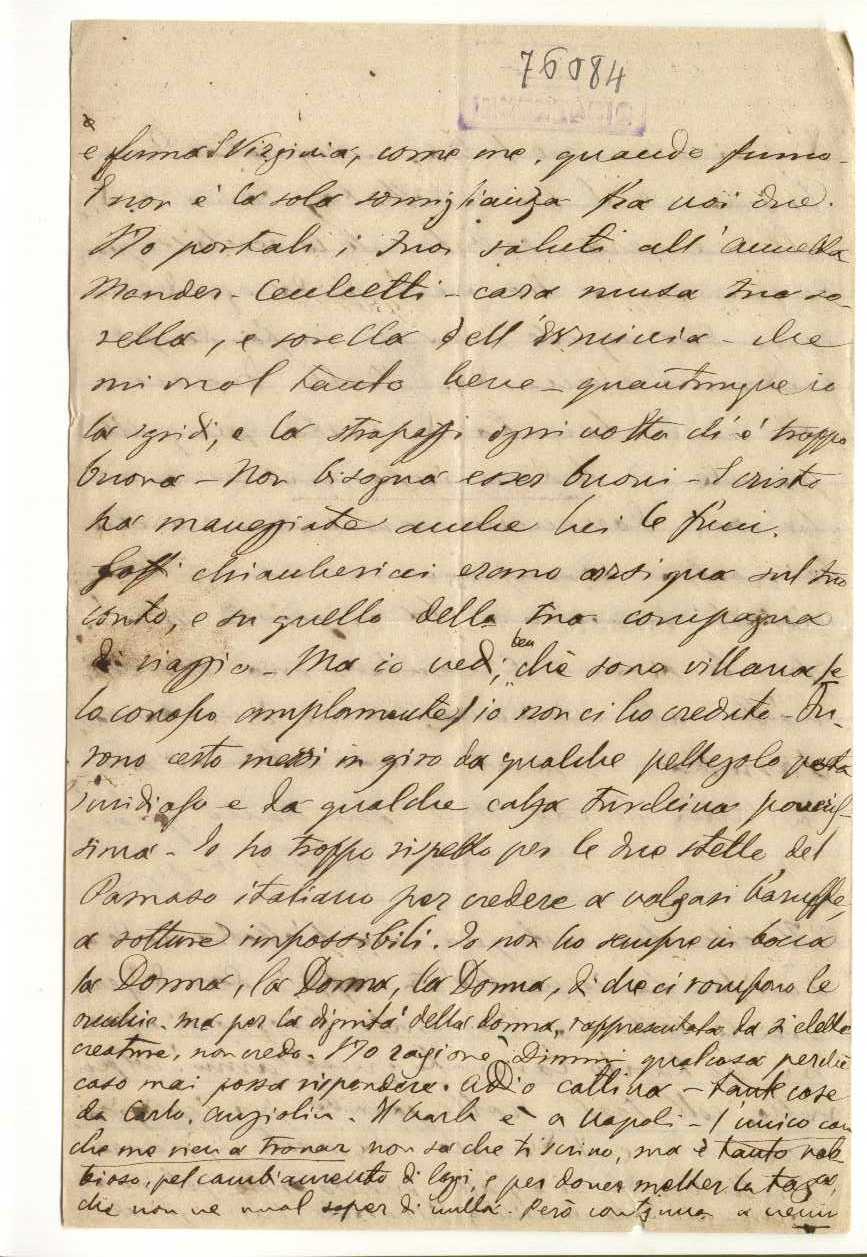 76084
e fuma Virginia, come me, quando fumo.
E non è la sola somiglianza fra voi due.
Ho portati i tuoi saluti all'Annetta
Mander-Cecchetti - cara musa tua so-
rella, e sorella dell'Erminia - che
mi vuol tanto bene - quantunque io
la sgridi, e la strapazzi ogni volta ch'è troppo
buona - Non bisogna esser buoni - E Cristo
ha maneggiate anche lui le funi.
chiaccherici erano corsi qua sul tuo
conto, e su quello della tua compagna
di viaggio - Ma io vedi, ben che sono villana (e
lo conosco amplamente) io non ci ho creduto - Fu-
rono certo messi in giro da qualche pettegolo poeta
invidioso e da qualche calza turchina
sima - Io ho troppo rispetto per le due stelle del
Parnaso italiano per credere a volgari baruffe,
a rotture impossibili. Io non ho sempre in bocca
la Donna, la Donna, la Donna, di che ci rompono le
orecchie. ma per la dignità della donna, rappresentata da sì elette
creature, non credo. Ho ragione? Dimmi qualcosa perchè
caso mai possa rispondere. Addio cattiva - tante cose
da Carlo, Angiolin. Il Barb è a Napoli - l'unico can
che me vien a trovar non so che ti scrivo, ma è tanto rab
bioso, pel cambiamento di logi, e per dover metter la tagia,
che non ne vual saper di nulla. Però continua a venir